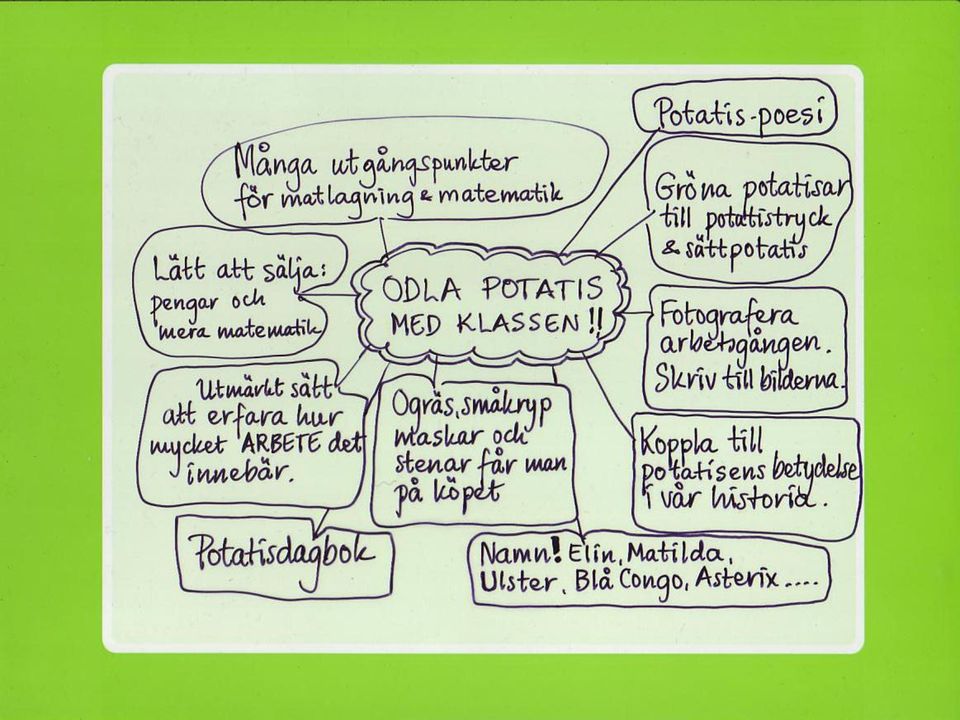 Potatis-poesi
Många utgångspunkter
för matlagning & matematik
Gröna potatisar
till potatistryck
& sättpotatis
Lätt att sälja:
pengar och
mera matematik
ODLA POTATIS
MED KLASSEN!!
Fotografera
arbetsgången.
Skriv till bilderna.
Utmärkt sätt
att erfara hur
mycket ARBETE det
innebär.
Ogräs, småkryp
maskar och
stenar får man
på köpet
Koppla till
potatisens betydelse
i vår historia.
Potatisdagbok
Namn! Elin, Matilda,
Ulster, Blå Congo, Asterix.....